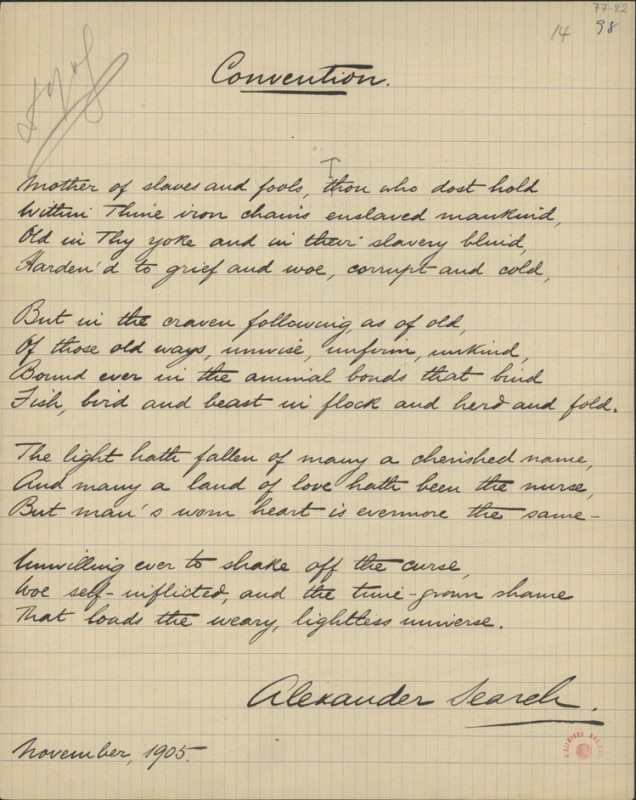 77-82
14 98
Convention.
Mother of slaves and fools, thou who dost hold
Within Thine iron chains enslaved mankind,
Old in Thy yoke and in their slavery blind,
Harden'd to grief and woe, corrupt and cold,
But in the craven following, as of old,
Of those old ways, unwise, unfirm, unkind,
Bound ever in the animal bonds that bind
Fish, bird and beast in flock and herd and fold.
The light hath fallen of many a cherished name,
And many a land of love hath been the nurse,
But man's worn heart is evermore the same –
Unwilling ever to shake off the curse,
Woe self-inflicted, and the time-grown shame
That loads the weary, lightless universe.
Alexander Search.
November, 1905.